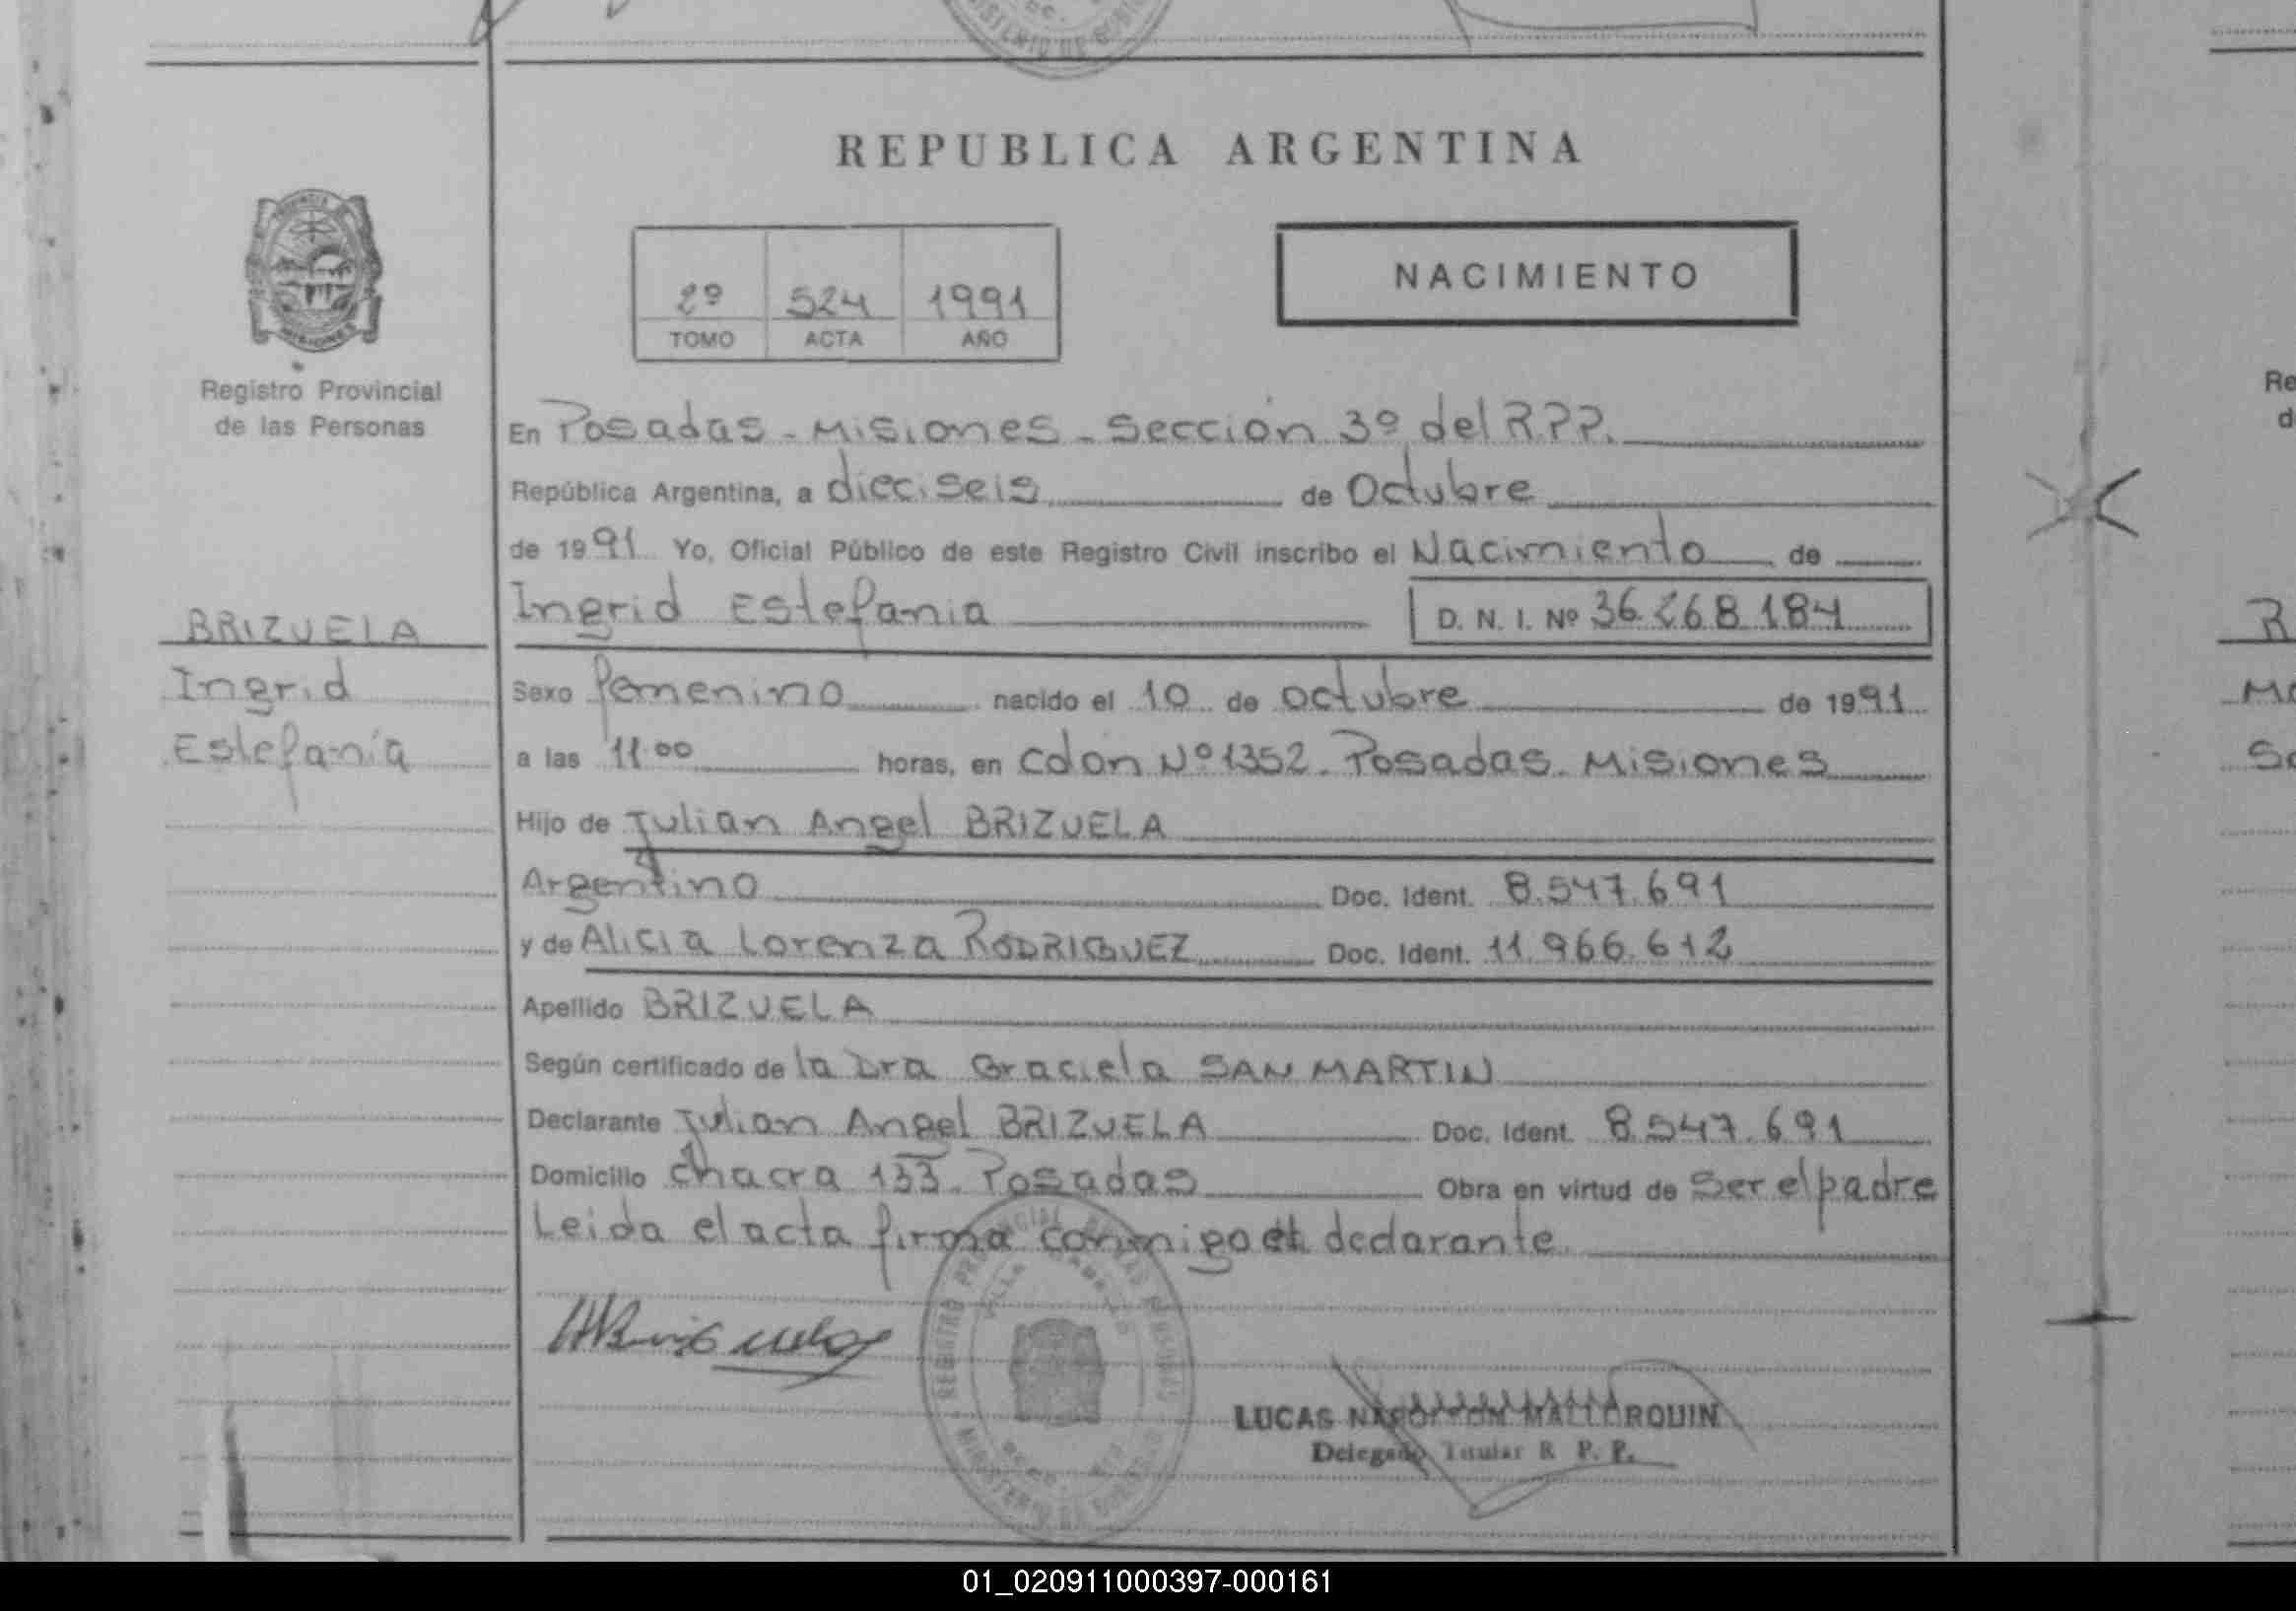 REPUBLICA ARGENTINA
2º 524 1991
TOMO ACTA AÑO
NACIMIENTO
Registro Provincial
de las Personas
BRIZUELA
Ingrid
Estefanía
En Posadas - Misiones - Sección 3º del R.P.P.
República Argentina, a dieciseis de Octubre
de 1991 Yo, Oficial Público de este Registro Civil inscribo el Nacimiento de
Ingrid Estefania D. N. I. Nº 36.268.184
Sexo femenino nacido el 10 de octubre de 1991
a las 11.00 horas, en Colón Nº 1352. Posadas. Misiones
Hijo de Julian Angel BRIZUELA
Argentino Doc. Ident. 8.547.691
y de Alicia Lorenza RODRIGUEZ Doc. Ident. 11.966.612
Apellido BRIZUELA
Según certificado de la Dra Graciela SAN MARTIN
Declarante Julian Angel BRIZUELA Doc. Ident. 8.547.691
Domicilio Chacra 133. Posadas Obra en virtud de Ser el padre
Leida el acta firma conmigo el declarante.
REGISTRO PROVINCIAL DE LAS PERSONAS
MINISTERIO DE GOBIERNO
LUCAS NAPOLEON MALLORQUIN
Delegado Titular R. P. P.
Re
d
R
Ma
So
01_020911000397-000161